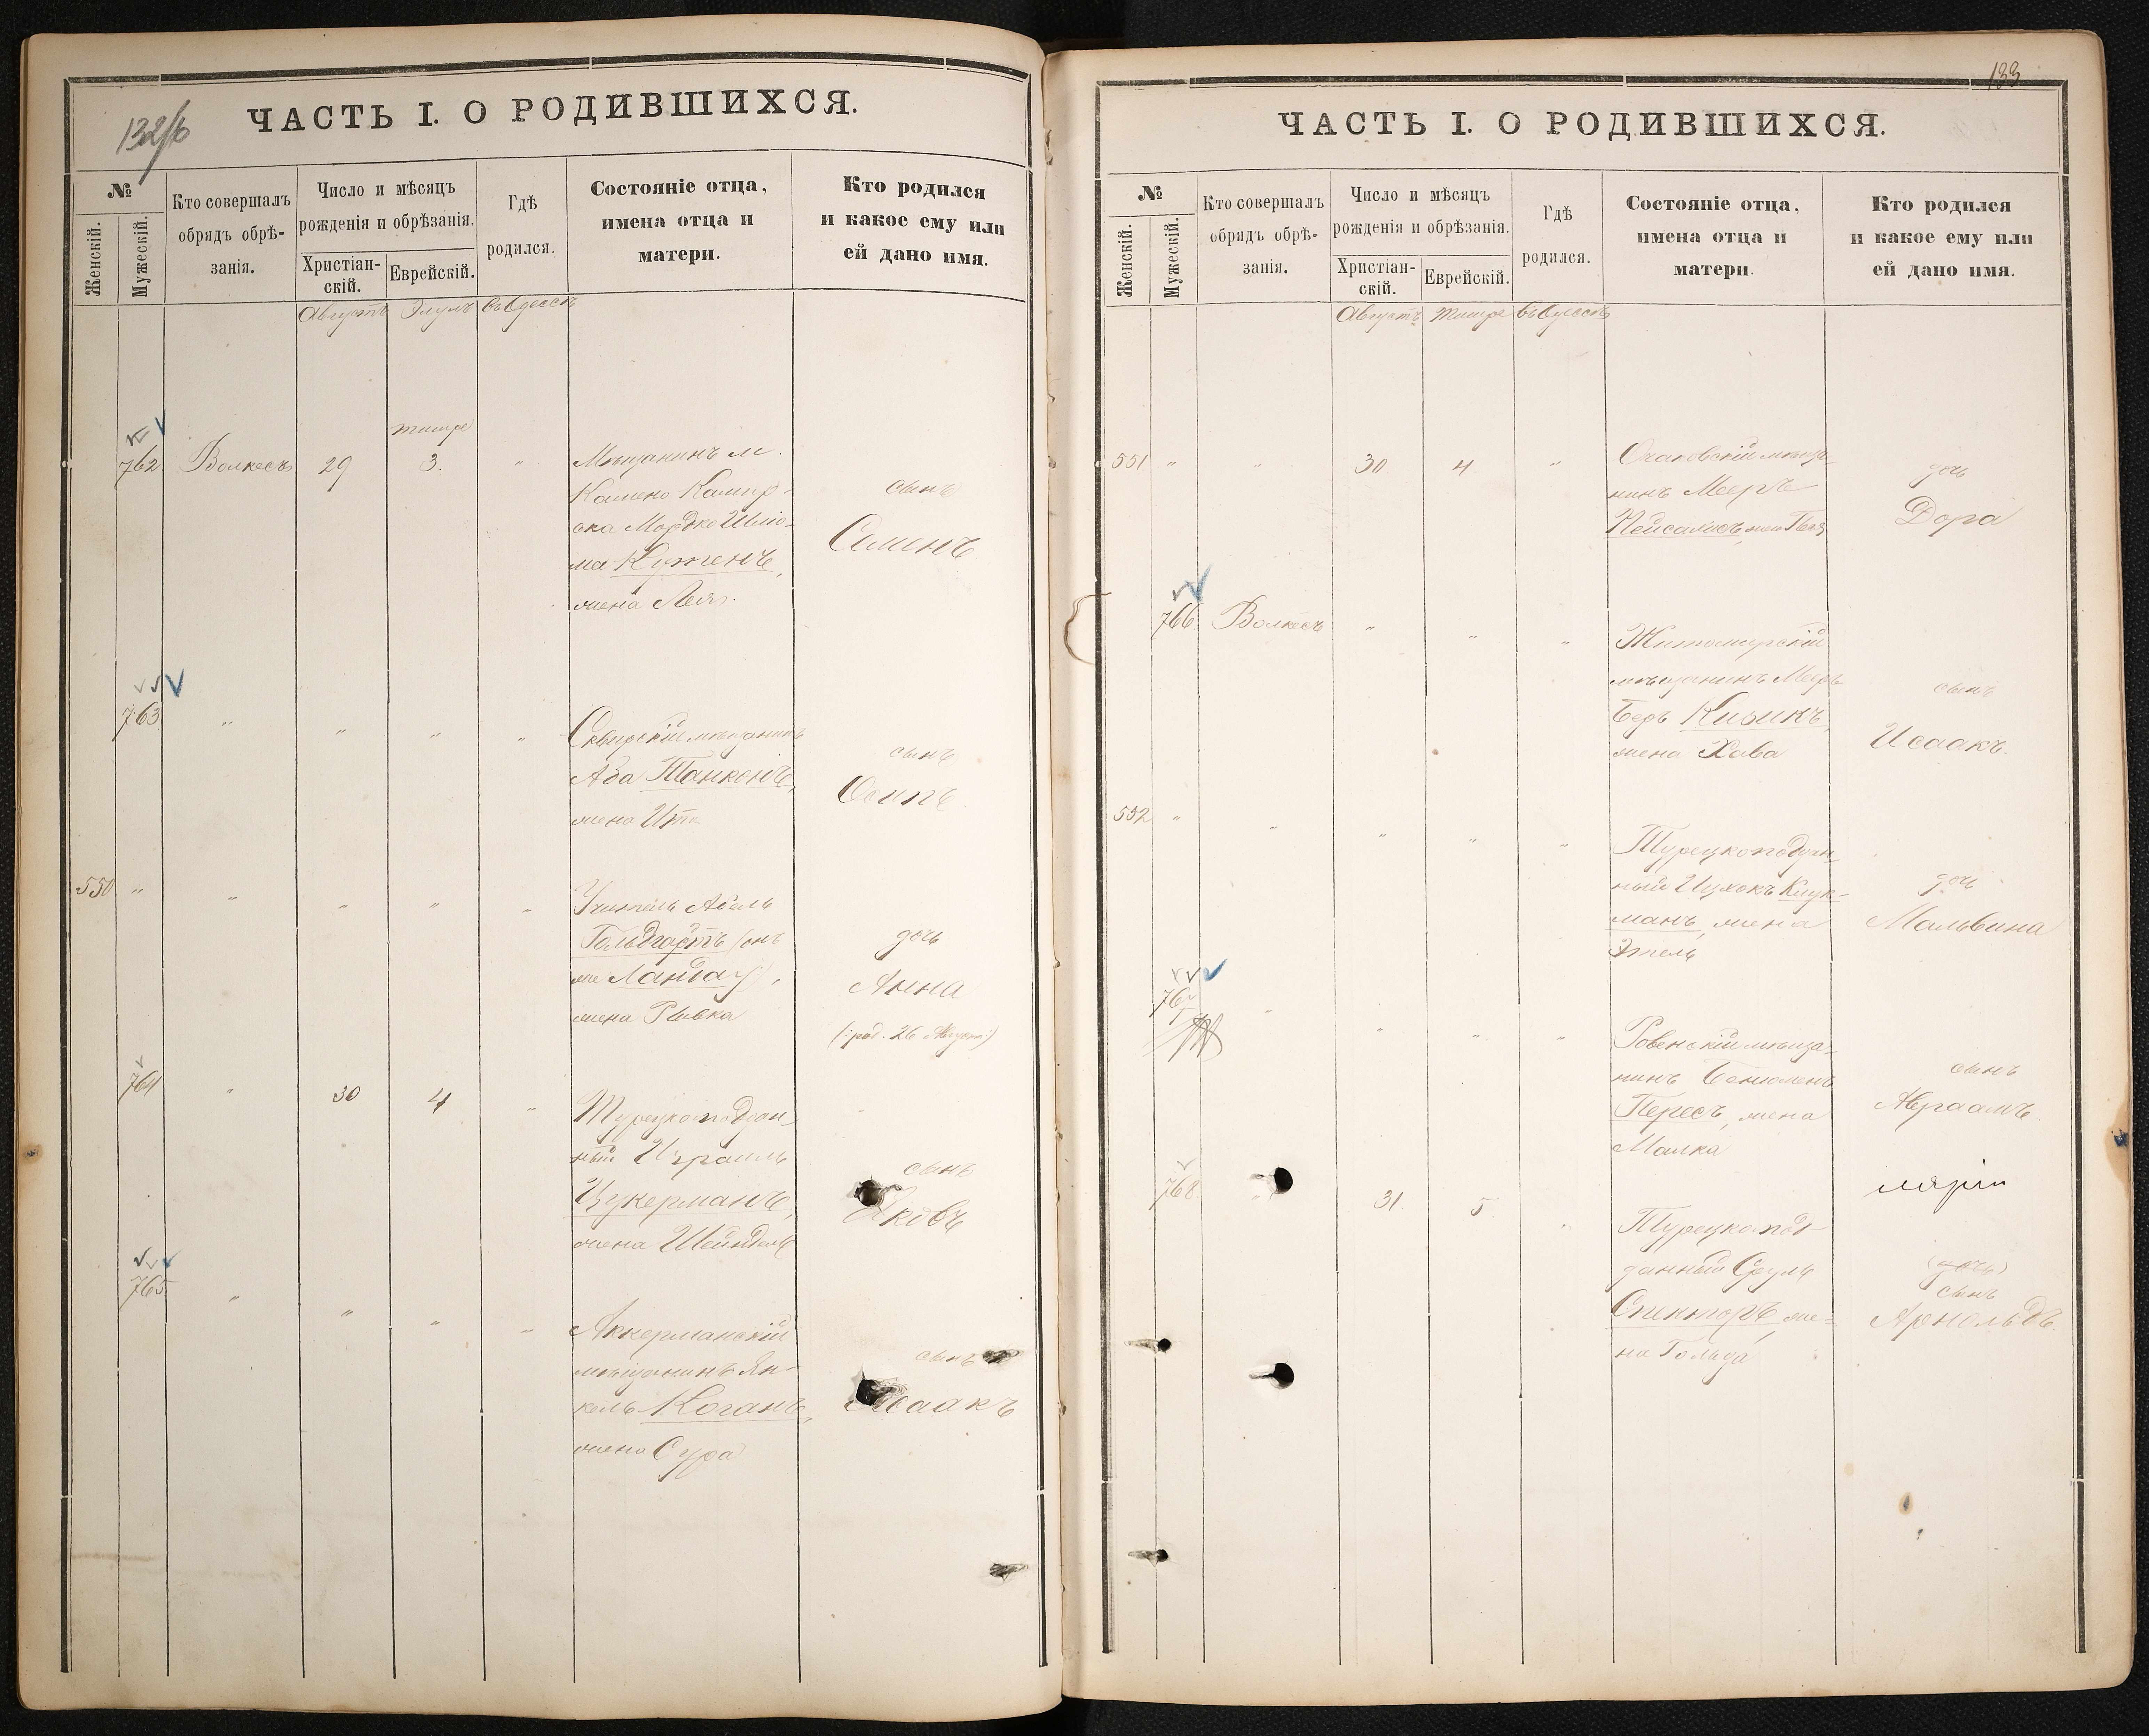 132/б
ЧАСТЬ I. О РОДИВШИХСЯ.
№
Женскій.
Мужескій.
Кто совершалъ
обрядъ обрѣ-
занія.
Число и мѣсяцъ
рожденія и обрѣзанія.
Христіан-
скій.
Еврейскій.
Гдѣ
родился.
Состояніе отца,
имена отца и
матери.
Кто родился
и какое ему или
ей дано имя.
Августъ Элулъ въ Одессѣ
тишре
762 Волкесъ 29 3. "
Мѣщанинъ м.
Камено Камир-
ска Мордко Шлио-
ма Кутенъ,
жена Лея.
сынъ
Семенъ
763 " " " "
Сквирскій мѣщанинъ
Аба Танкенъ,
жена Ита
сынъ
Осипъ
550 " " " " "
Учитель Абель
Гольдгартъ (онъ
же Ландау),
жена Ривка
дочь
Анна
(род. 26 Августа)
764 " 30 4 "
Турецкоподдан-
ный Израиль
Цукерманъ,
жена Шейндля
сынъ
Яковъ
765 " " " "
Аккерманскій
мѣщанинъ Ян-
кель Коганъ,
жена Сура
сынъ
Исаакъ
133
ЧАСТЬ I. О РОДИВШИХСЯ.
№
Женскій.
Мужескій.
Кто совершалъ
обрядъ обрѣ-
занія.
Число и мѣсяцъ
рожденія и обрѣзанія.
Христіан-
скій.
Еврейскій.
Гдѣ
родился.
Состояніе отца,
имена отца и
матери.
Кто родился
и какое ему или
ей дано имя.
Августъ Тишре въ Одессѣ
551 " " 30 4 "
Очаковскій мѣща-
нинъ Мееръ
Пейсаховъ, жена
дочь
Дора
766 Волкесъ " " "
Житомирскій
мѣщанинъ Мееръ
Беръ Кизикъ,
жена Хава
сынъ
Исаакъ.
552 " " " " "
Турецкоподдан-
ный Ицхокъ Клук-
манъ, жена
Этель
дочь
Мальвина
767 " " " "
Ровенскій мѣща-
нинъ Бенюменъ
Пересъ, жена
Малка
сынъ
Авраамъ.
768 " 31. 5. "
Турецкопод-
данный Сруль
Спекторъ, же-
на Гольда
(дочь)
сынъ
Арнольдъ.